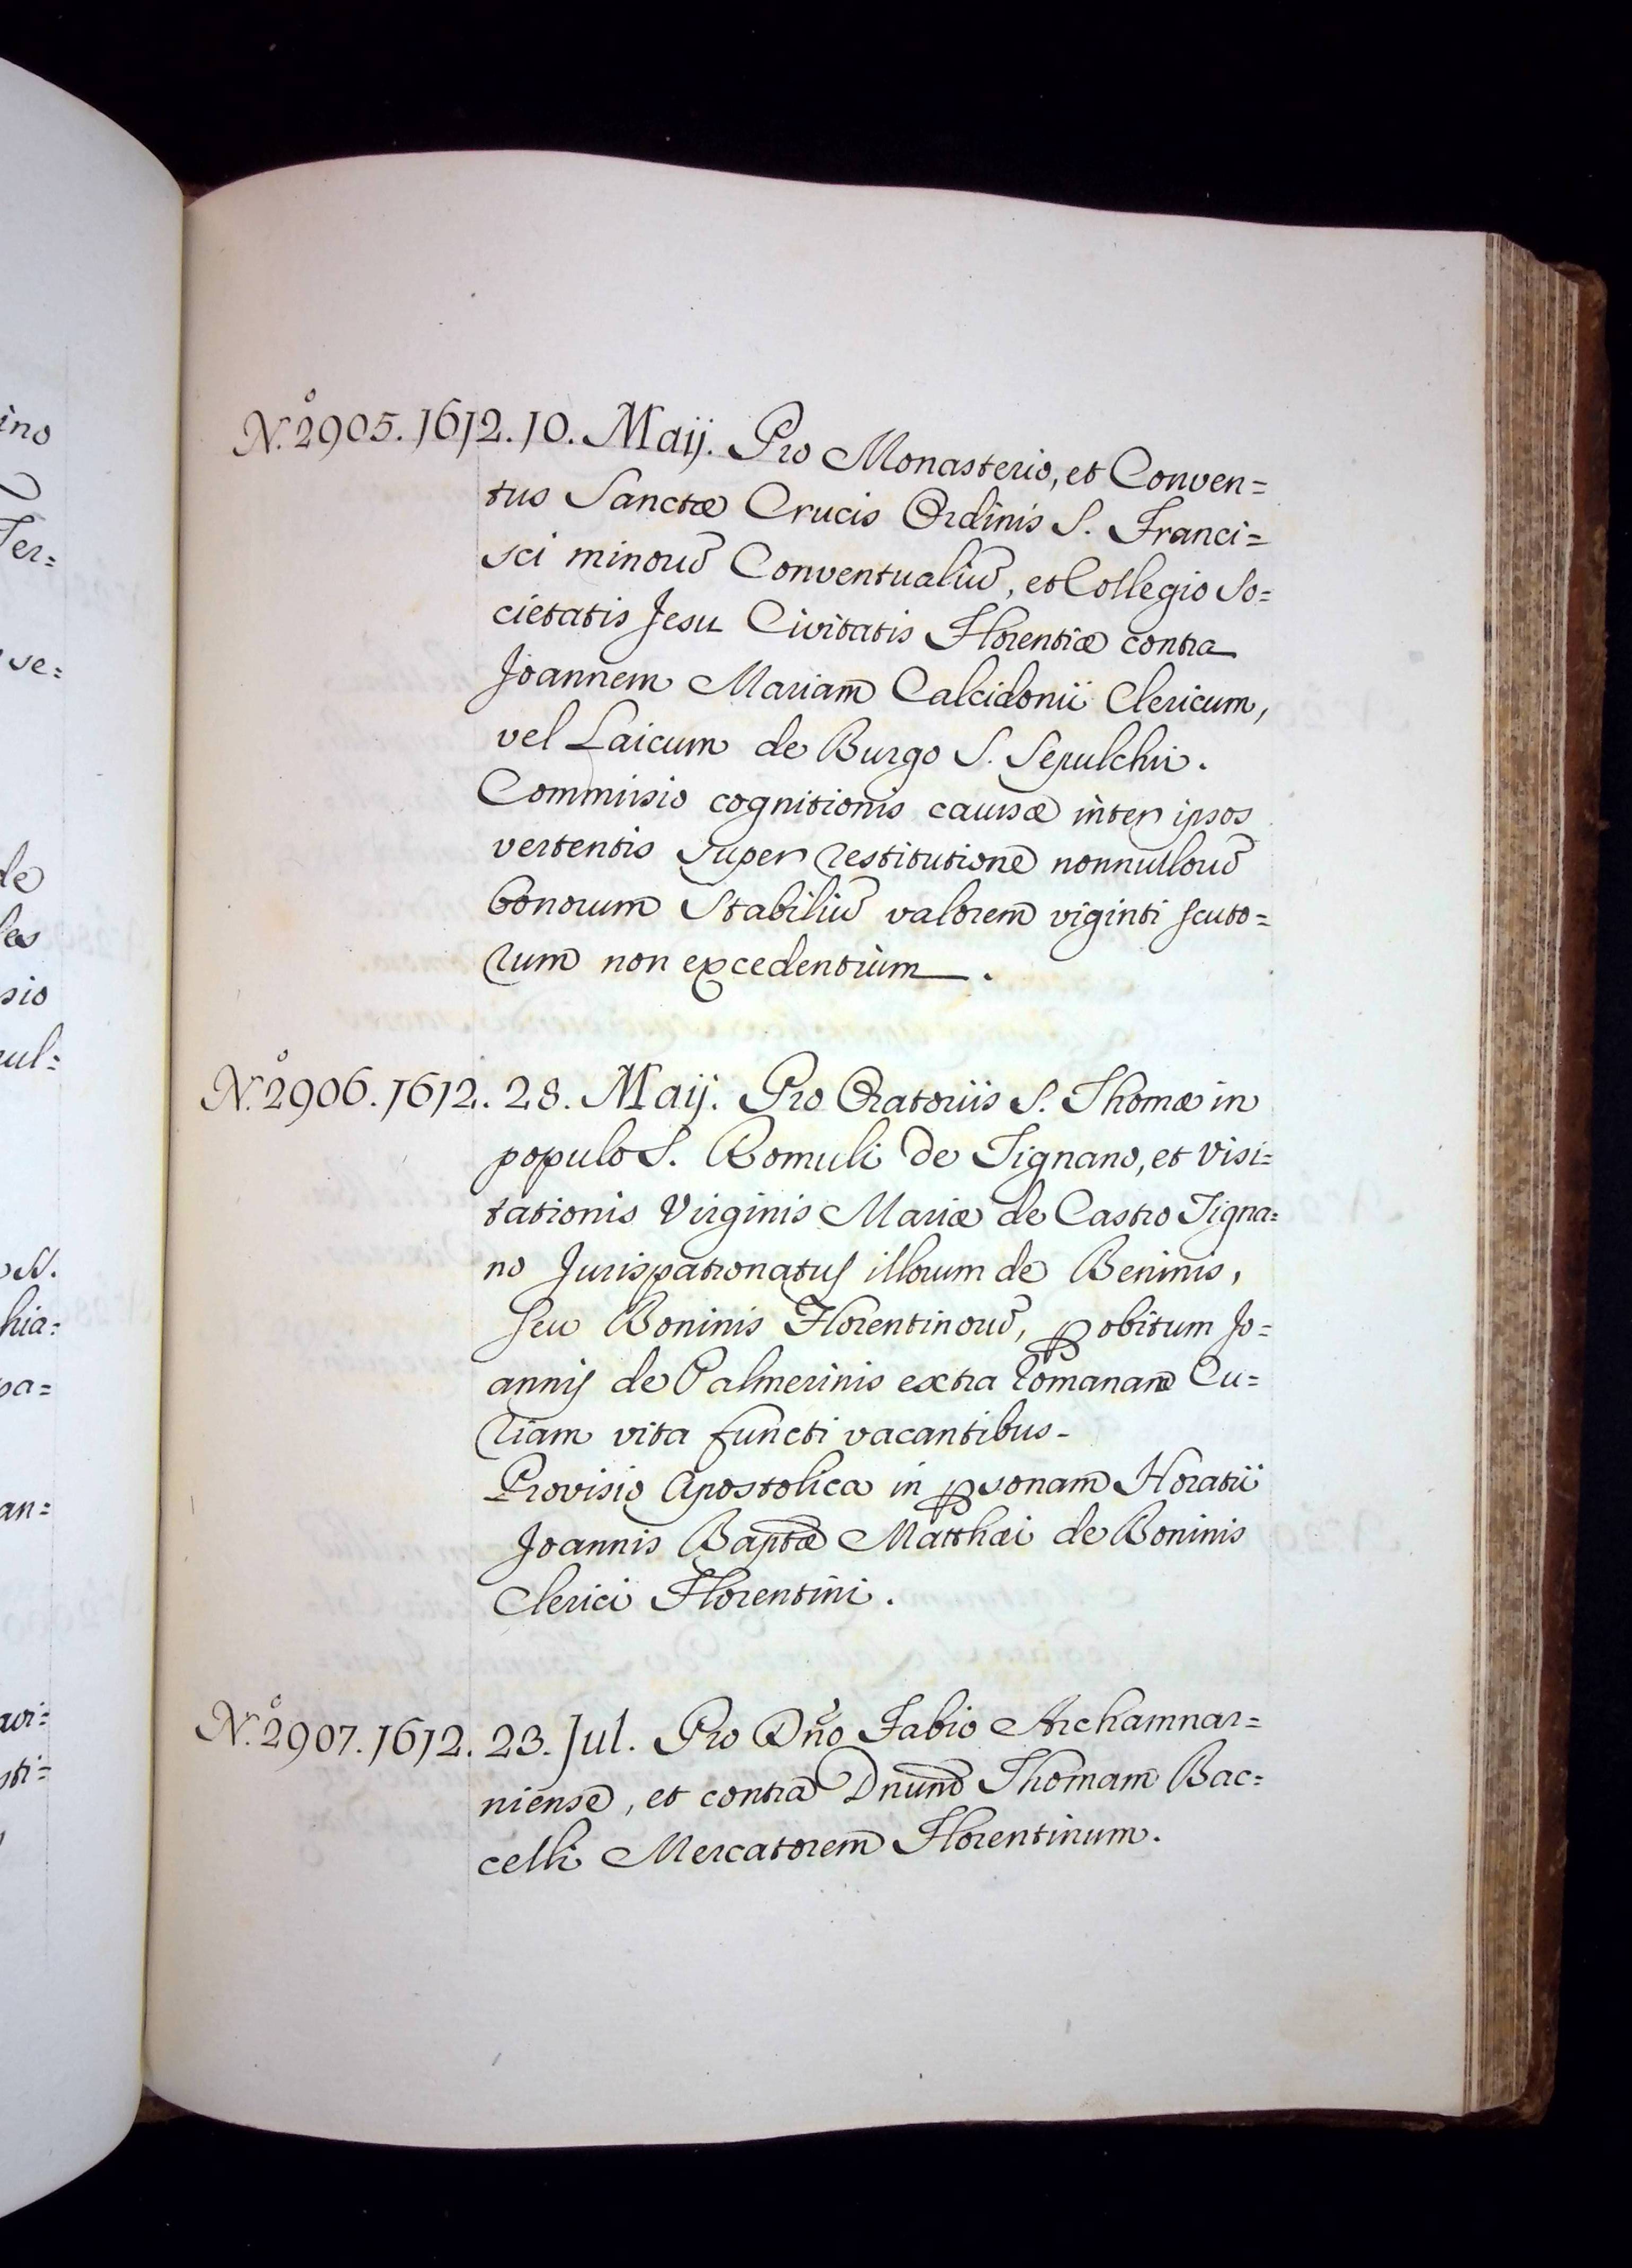 ino
Ter=
se=
de
les
sio
cul=
N.
hia=
pa=
an=
sti=
N.º 2905. 1612. 10. Maij. Pro Monasterio, et Conven=
tus Sanctæ Crucis Ordinis S. Franci=
sci minorũ Conventualiũ, et Collegio So=
cietatis Jesu Civitatis Florentiæ contra
Joannem Mariam̃ Calcidonii Clericum,
vel Laicum de Burgo S. Sepulchri.
Commissio cognitionis causæ inter ipsos
vertentis super restitutionẽ nonnullorũ
bonorum Stabiliũ valorem̃ viginti scuto=
rum non excedentium.
N.º 2906. 1612. 28. Maij. Pro Oratoriis S. Thomæ in
populo S. Romuli de Tignano, et Visi=
tationis Virginis Mariæ de Castro Tigna=
no Jurispatronatus illorum de Beninis,
seu Boninis Florentinorũ, ꝑ obitum Jo=
annis de Palmerinis extra Romanam̃ Cu=
riam vita functi vacantibus.
Provisio Apostolica in ꝑsonam̃ Horatii
Joannis Baptæ̃ Matthæi de Boninis
Clerici Florentini.
N.º 2907. 1612. 23. Jul. Pro Dño Fabio Archamnar=
niensẽ, et contra Dnum̃ Thomam̃ Bac=
celli Mercatorem̃ Florentinum.